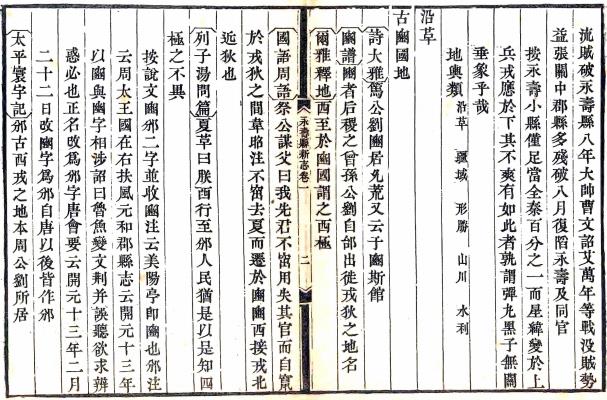 流賊破永壽縣八年大帥曹文詔艾萬年等戰没賊勢
益張關中郡縣多殘破八月復陷永壽及同官
按永壽小縣僅足當全秦百分之一而星緯變於上
兵戎應於下其不爽有如此者孰謂彈丸黑子無關
垂象乎哉
地輿類 沿革 疆域 形勝 山川 水利
沿革
古豳國地
詩大雅篤公劉豳居允荒又云于豳斯館
豳譜豳者后稷之曾孫公劉自邰出徙戎狄之地名
爾雅釋地西至於豳國謂之西極
永壽縣新志卷一 二
國語周語祭公謀父曰我先君不窋用失其官而自竄
於戎狄之間韋昭注不窋去夏而遷於豳豳西接戎北
近狄也
列子湯問篇夏革曰朕西行至邠人民猶是以是知四
極之不異
按說文豳邠二字並收豳注云美陽亭即豳也邠注
云周太王國在右扶風元和郡縣志云開元十三年
以豳與幽字相涉詔曰魯魚變文荆并誤聽欲求辨
惑必也正名改爲邠字唐會要云開元十三年二月
二十二日改豳字爲邠自唐以後皆作邠
太平寰宇記邠古西戎之地本周公劉所居